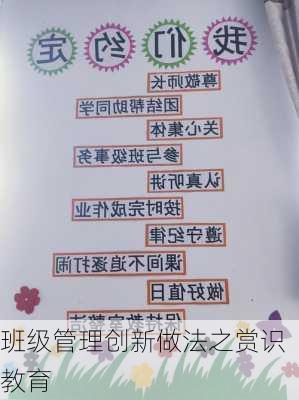 我们约定
尊敬师长
团结帮助同学
关心集体
参与班级事务
认真听讲
按时完成作业
遵守纪律
课间不追逐打闹
做好值日
保持教室整洁
班级管理创新做法之赏识
教育